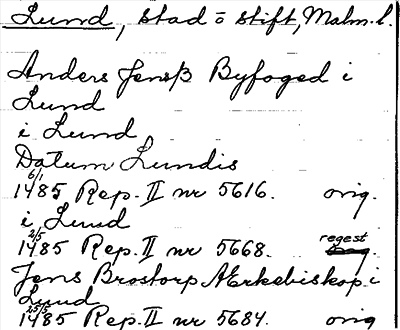 Lund, stad o stift, Malm. l.
Anders Jensβ Byfoged i
Lund
i Lund
Datum Lundis
6/1
1485 Rep. II nr 5616. orig.
i Lund
2/5 regest
1485 Rep. II nr 5668.
Jens Brostorp Ærkebiskop i
Lund
25/5
1485 Rep. II nr 5684. orig